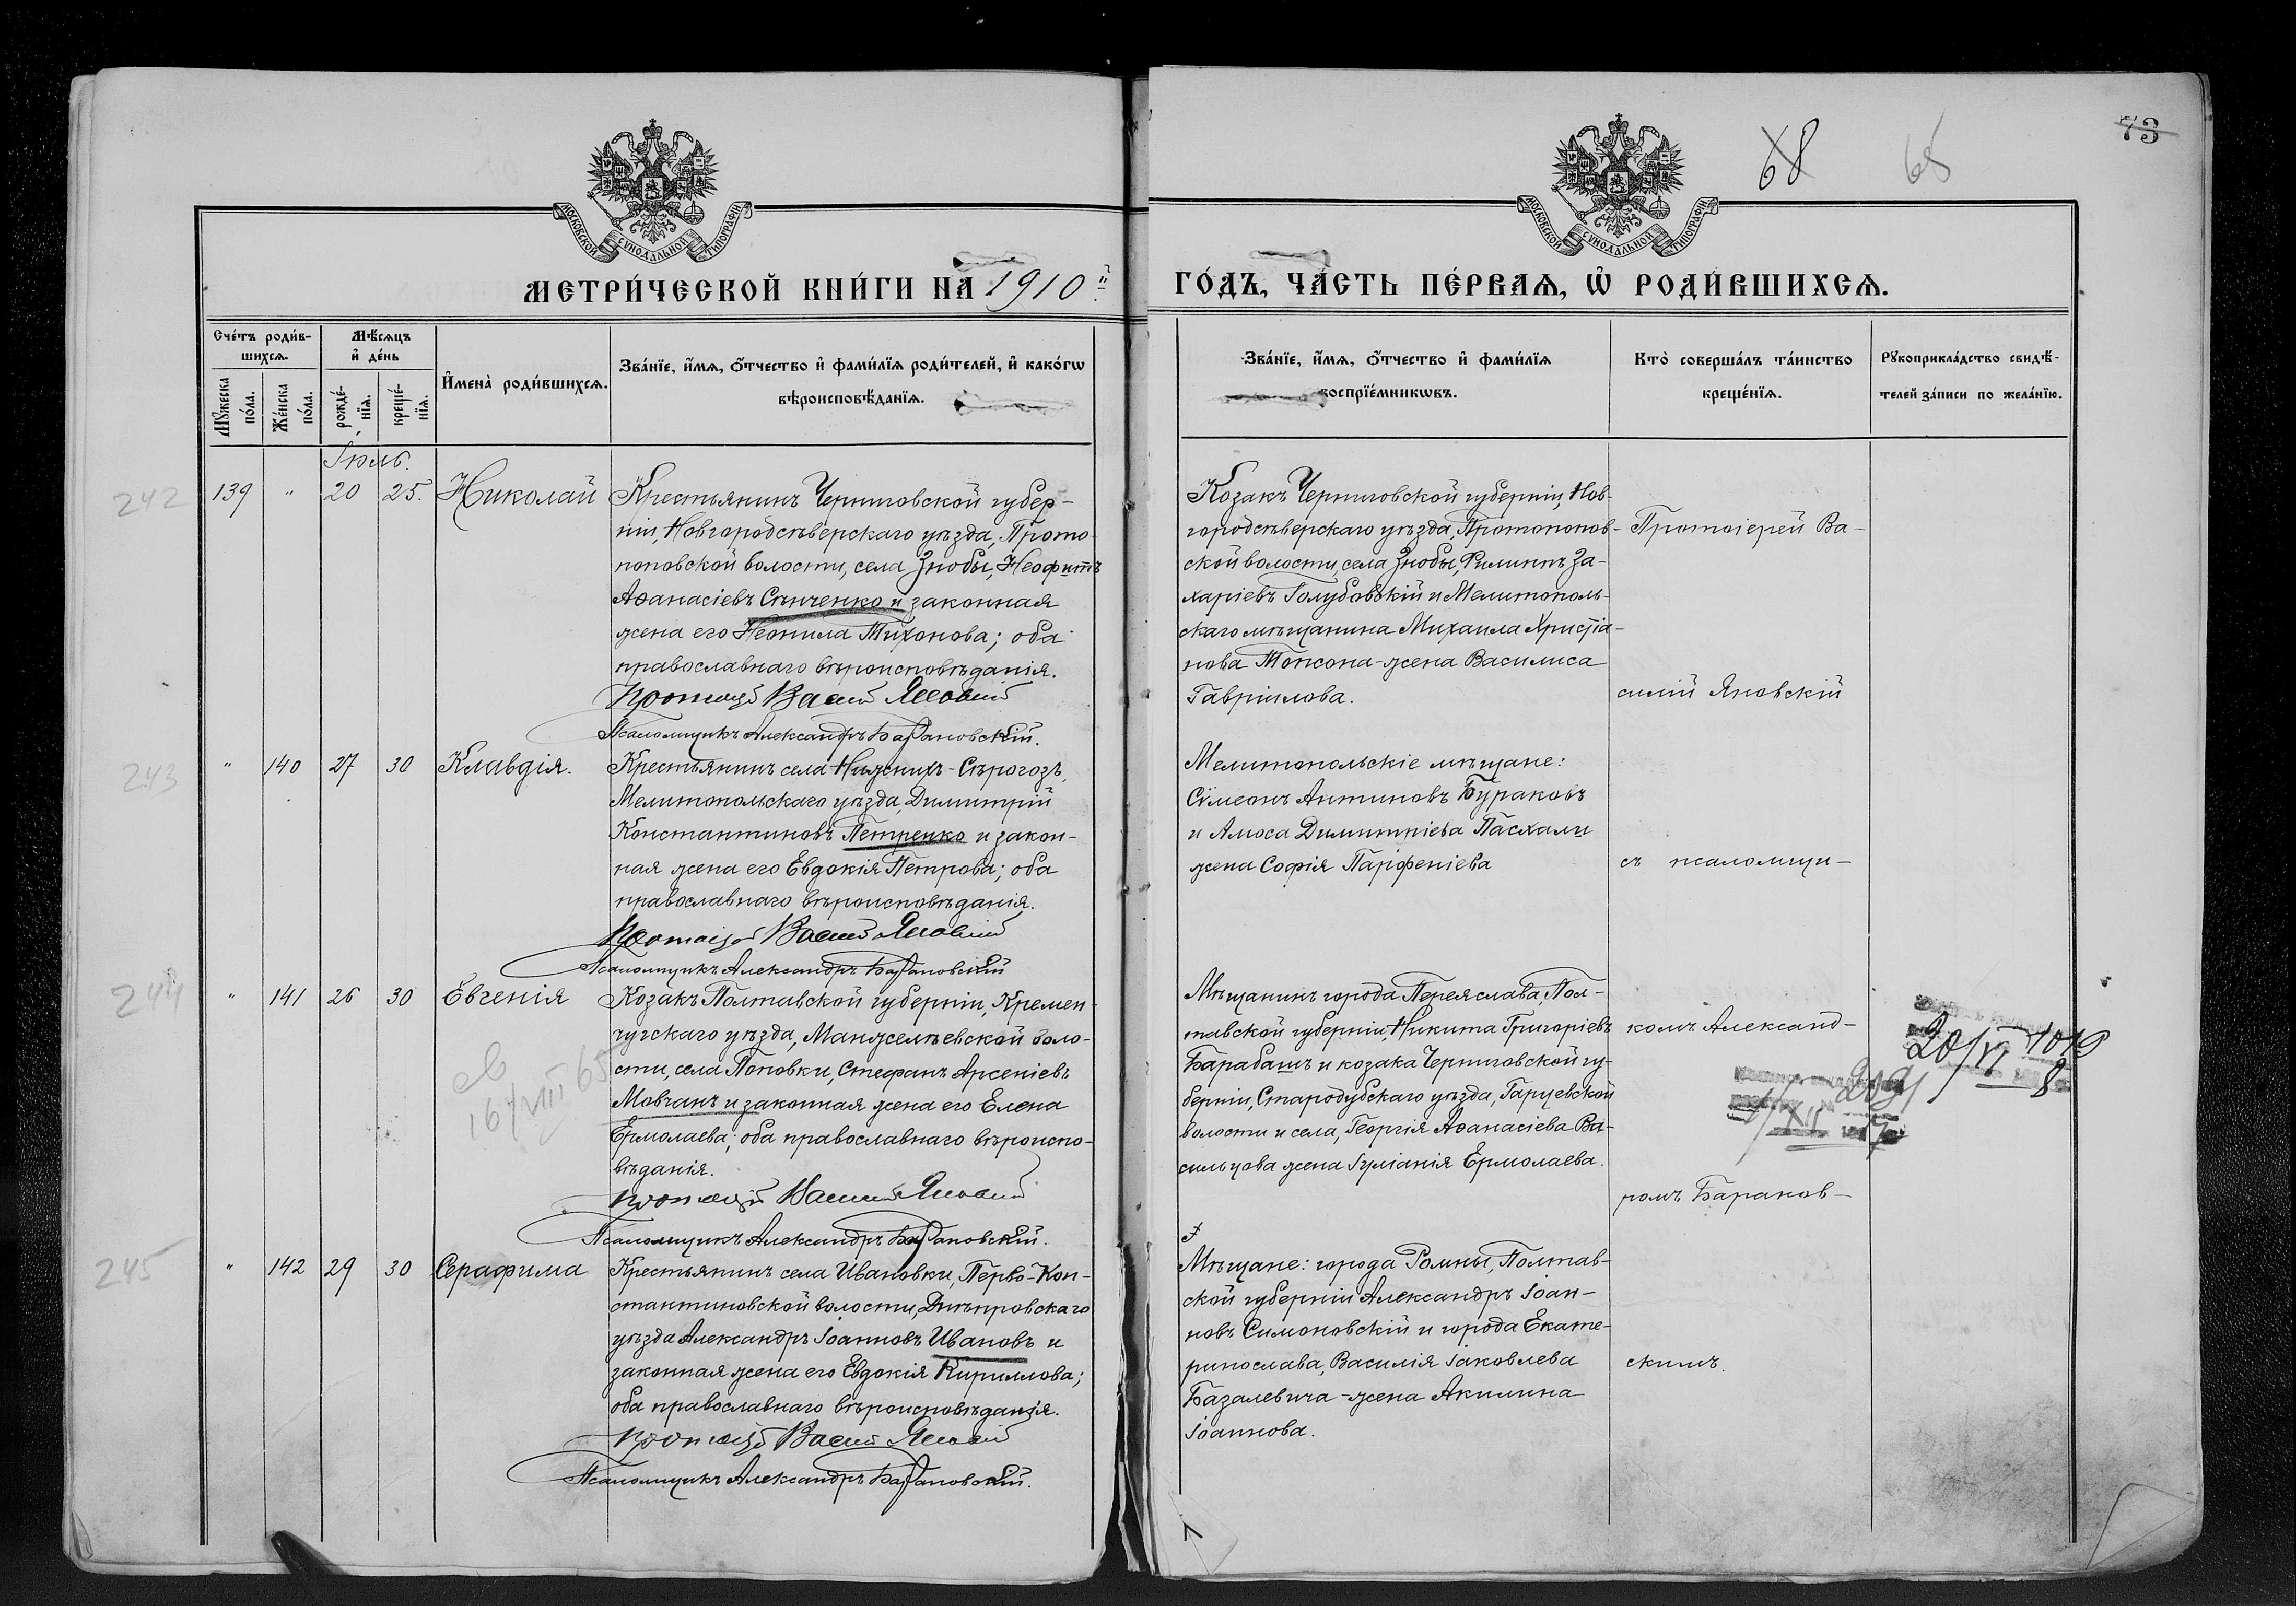 73
68
65
МОСКОВСКОЙ СѴНОДАЛЬНОЙ ТИПОГРАФІИ
МОСКОВСКОЙ СѴНОДАЛЬНОЙ ТИПОГРАФІИ
МЕТРИ́ЧЕСКОЙ КНИ́ГИ НА 1910й
ГО́ДЪ, ЧА́СТЬ ПЕ́РВАѦ, Ѡ҆ РОДИ́ВШИХСѦ.
Сче́тъ роди́в-
шихсѧ.
Мꙋ́жеска
по́ла.
Же́нска
по́ла.
Мѣ́сѧцъ
и҆ де́нь
рожде́-
нїѧ.
креще́-
нїѧ.
И҆мена̀ роди́вшихсѧ.
Зва́нїе, и҆́мѧ, ѻ҆́тчество и҆ фами́лїѧ роди́телей, и҆ како́гѡ
вѣроисповѣ́данїѧ.
Зва́нїе, и҆́мѧ, ѻ҆́тчество и҆ фами́лїѧ
воспрїе́мникѡвъ.
Кто̀ соверша́лъ та́инство
креще́нїѧ.
Рꙋкоприкла́дство свидѣ́-
телей за́писи по жела́нїю.
Іюль.
242
139 " 20 25. Николай
Крестьянинъ Черниговской губер-
ніи, Новгородсѣверскаго уѣзда, Прото-
поповской волости, села Знобы, Неофитъ
Аѳанасіевъ Сѣнченко и законная
жена его Неонила Тихонова; оба
православнаго вѣроисповѣданія.
Протоіерей Василій Яновскій
Псаломщикъ Александръ Барановскій.
Козакъ Черниговской губерніи, Нов-
городсѣверскаго уѣзда, Протопопов-
ской волости, села Знобы, Филиппъ За-
харіевъ Голубовскій и Мелитополь-
скаго мѣщанина Михаила Христіа-
нова Топсона - жена Василиса
Гавріилова.
Протоіерей Ва-
силій Яновскій
243
" 140 27 30 Клавдія.
Крестьянинъ села Нижнихъ-Сѣрогозъ,
Мелитопольскаго уѣзда, Димитрій
Константиновъ Петренко и закон-
ная жена его Евдокія Петрова; оба
православнаго вѣроисповѣданія.
Протоіерей Василій Яновскій
Псаломщикъ Александръ Барановскій
Мелитопольскіе мѣщане:
Сѵмеонъ Антиповъ Бураковъ
и Амоса Димитріева Пасхали
жена Софія Парѳеніева
съ псаломщи-
244
" 141 26 30 Евгенія
Козакъ Полтавской губерніи, Кремен-
чугскаго уѣзда, Манжелѣевской воло-
сти, села Поповки, Стефанъ Арсеніевъ
Мовчанъ и законная жена его Елена
Ермолаева; оба православнаго вѣроиспо-
вѣданія.
Протоіерей Василій Яновскій
Псаломщикъ Александръ Барановскій.
16/VIII 65
Мѣщанинъ города Переяслава, Пол-
тавской губерніи, Никита Григоріевъ
Барабашъ и козака Черниговской гу-
берніи, Стародубскаго уѣзда, Гарцевской
волости и села, Георгія Аѳанасіева Ва-
сильцова жена Іуліанія Ермолаева.
комъ Александ-
ромъ Баранов-
245
" 142 29 30 Серафима
Крестьянинъ села Ивановки, Перво-Кон-
стантиновской волости, Днѣпровскаго
уѣзда Александръ Іоанновъ Ивановъ и
законная жена его Евдокія Кириллова;
оба православнаго вѣроисповѣданія.
Протоіерей Василій Яновскій
Псаломщикъ Александръ Барановскій.
Мѣщане: города Ромны, Полтав-
ской губерніи Александръ Іоан-
новъ Симоновскій и города Екате-
ринослава, Василія Іаковлева
Базалевича - жена Акилина
Іоаннова.
скимъ.